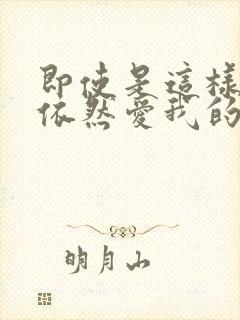 即使是這樣
依然愛我的
明月山